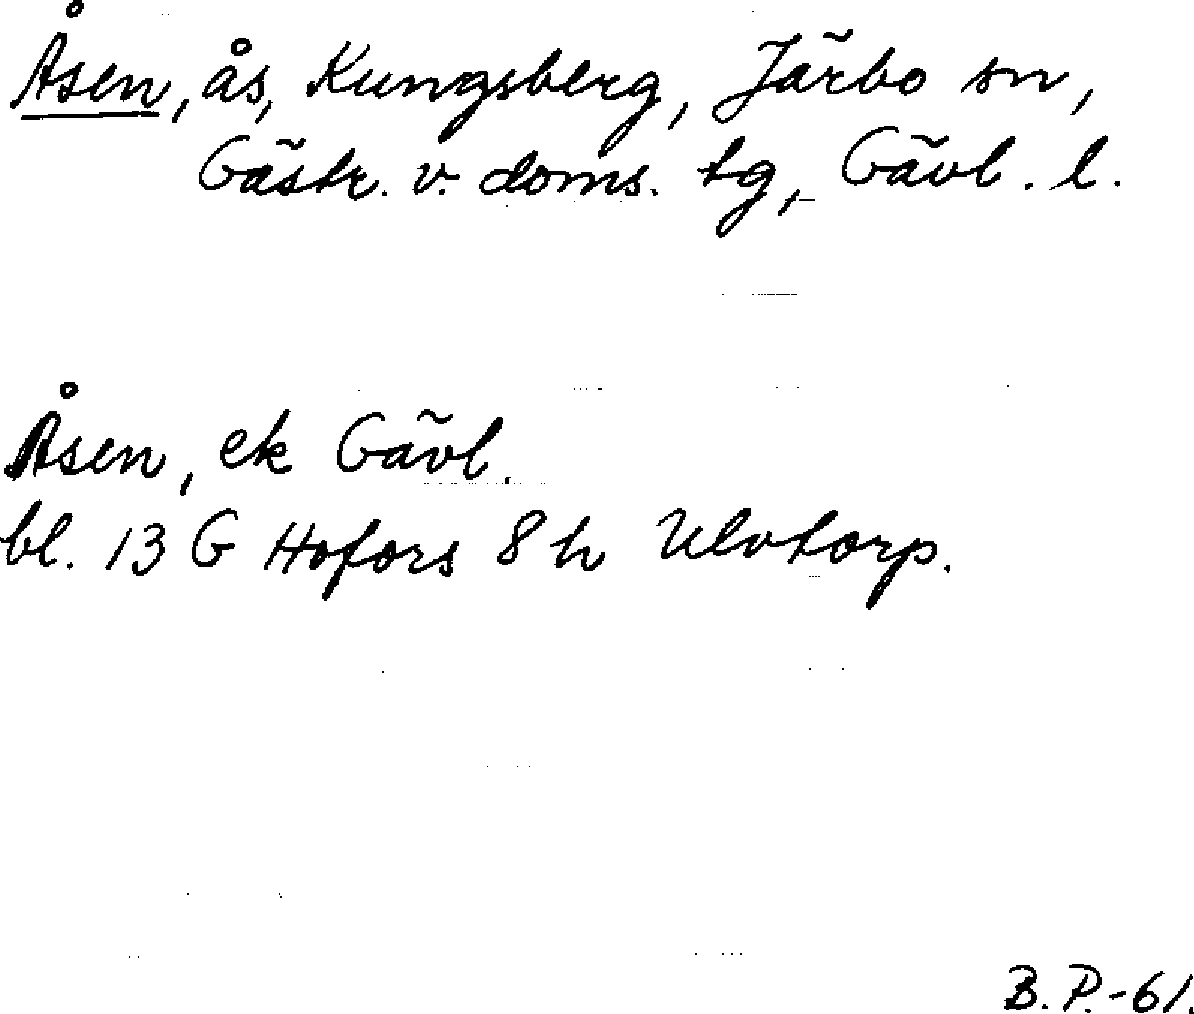 Åsen, ås, Kungsberg, Järbo sn,
Gästr. v. doms. tg, Gävl. l.
Åsen, ek Gävl.
bl. 13 G Hofors 8 h Ulvtorp.
B. P. -61.